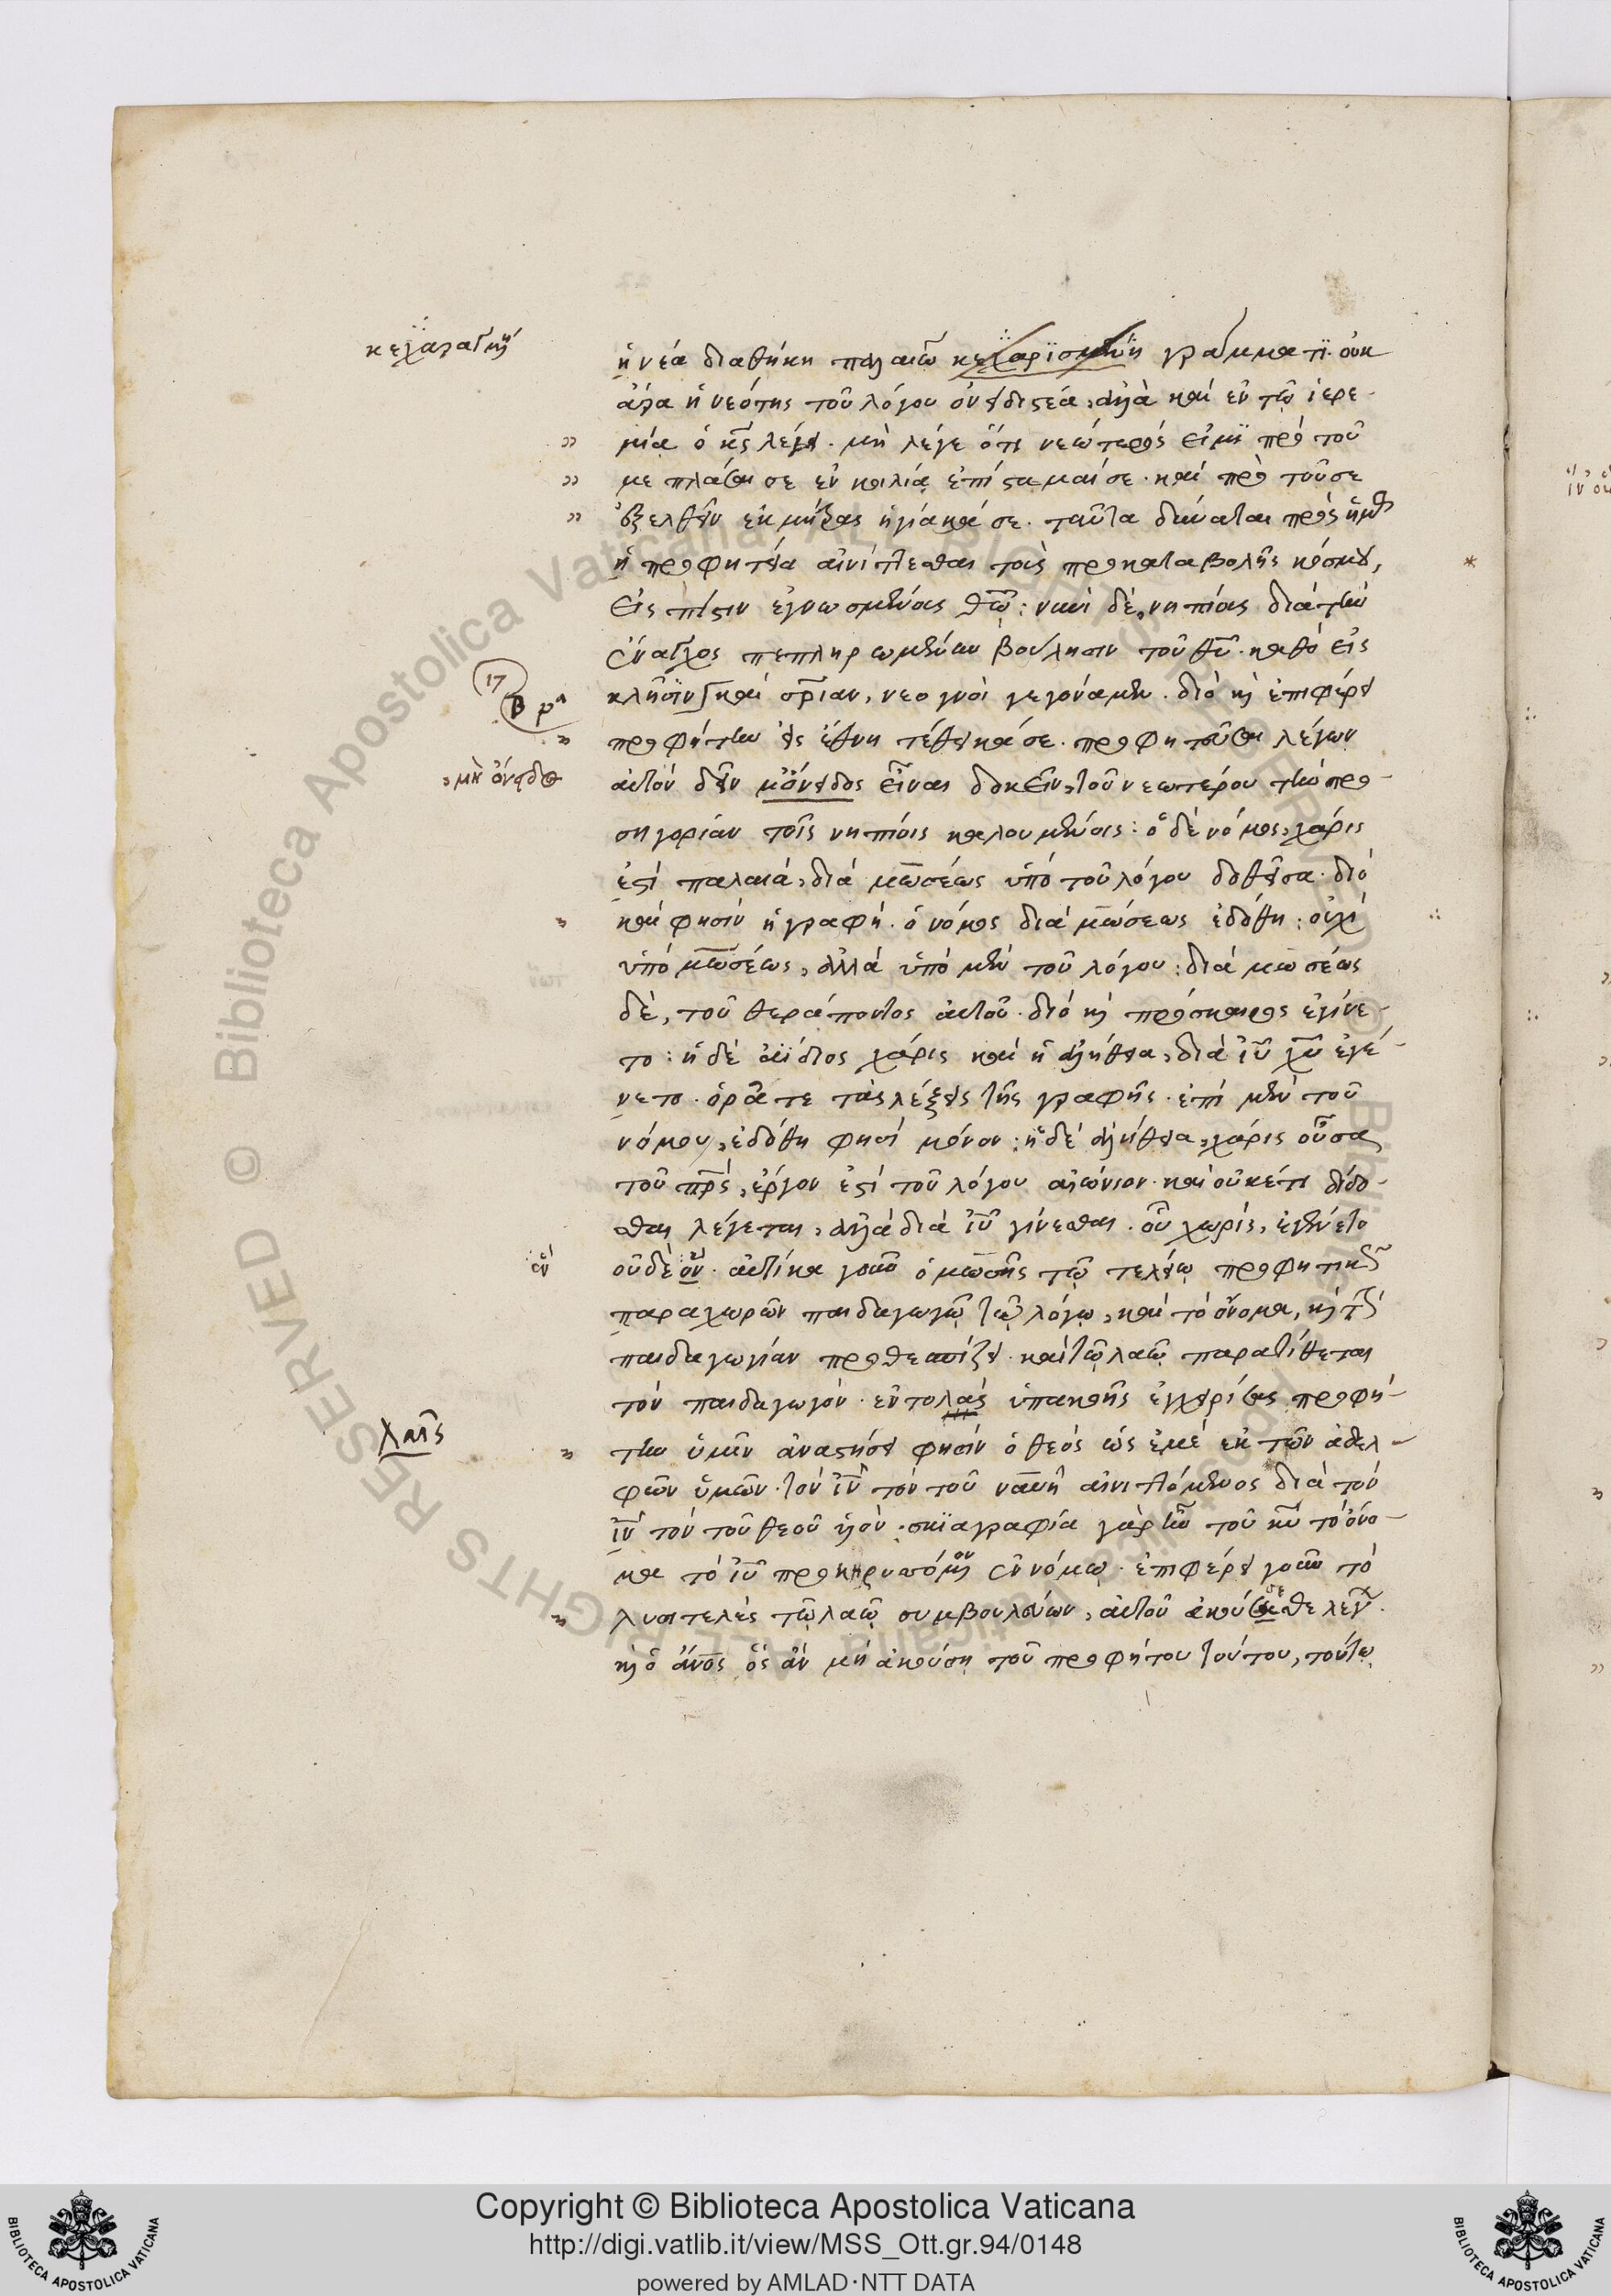 κεχαραγμένη
ἡ νέα διαθήκη παλαιῶ κεχαρϊσμένη γράμματϊ. οὐκ
ἄρα ἡ νεότης τοῦ λόγου ὀνειδιστέα, ἀλλὰ καὶ ἐν τῶ ἱερε-
μία ὁ κς λέγει. μὴ λέγε ὅτι νεώτερός εἰμϊ πρὸ τοῦ
με πλάσαι σε ἐν κοιλία ἐπίσταμαί σε. καὶ πρὸ τοῦ σε
ἐξελθεῖν ἐκ μήτρας ἡγίακά σε. ταῦτα δύναται πρὸς ἡμᾶς
ἡ προφητεία αἰνίττεσθαι τοὺς προκαταβολῆς κόσμου,
εἰς πίστιν ἐγνωσμένους θῶ: νυνὶ δὲ, νηπίους διὰ τὴν
ἔναγχος πεπληρωμένην βούλησιν τοῦ θυ. καθὸ εἰς
17
κλῆσιν καὶ σρίαν, νεογνοὶ γεγόναμεν. διὸ κ ἐπιφέρει
β ρα
προφήτην εἰς ἔθνη τέθεικά σε. προφητεῦσαι λέγων
μὴ ὄνειδος
αὐτὸν δεῖν μὄνειδος εἶναι δοκεῖν, τοῦ νεωτέρου τὴν προ-
σηγορίαν τοῖς νηπίοις καλουμένοις: ὁ δὲ νόμος, χάρις
ἐστὶ παλαιά, διὰ μωσέως ὑπὸ τοῦ λόγου δοθεῖσα. διό
καὶ φησὶν ἡ γραφή. ὁ νόμος διὰ μωσέως ἐδόθη: οὐχὶ
ὑπὸ μωσέως, ἀλλὰ ὑπὸ μὲν τοῦ λόγου: διὰ μωσέως
δὲ, τοῦ θεράποντος αὐτοῦ. διὸ κ πρόσκαιρος ἐγίνε-
το: ἡ δὲ ἀΐδιος χάρις καὶ ἡ ἀλήθεια, διὰ ιυ χυ ἐγέ-
νετο. ὁρᾶτε τὰς λέξεις τῆς γραφῆς. ἐπὶ μὲν τοῦ
νόμου, ἐδόθη φησὶ μόνον: ἡ δὲ ἀλήθεια, χάρις οὖσα
τοῦ πρς, ἔργον ἐστὶ τοῦ λόγου αἰώνιον. καὶ οὐκέτι δίδο-
σθαι λέγεται, ἀλλὰ διὰ ιυ γίνεσθαι. οὗ χωρὶς, ἐγένετο
ἕν
οὐδὲ ὃν. αὐτίκα γοῦν ὁ μωσῆς τῶ τελείω προφητικῶς
παραχωρῶν παιδαγωγῶ τῶ λόγω, καὶ τὸ ὄνομα, κ τὴν
παιδαγωγίαν προθεσπίζει. καὶ τῶ λαῶ παρατίθεται
τὸν παιδαγωγόν. ἐντολὰς ὑπακοῆς ἐγχειρίσας προφή-
λαῖς
την ὑμῖν ἀναστήσει φησὶν ὁ θεὸς ὡς ἐμὲ ἐκ τῶν ἀδελ-
φῶν ὑμῶν. τὸν ιν τὸν τοῦ ναυῆ αἰνιττόμενος διὰ τὸν
ιν τὸν τοῦ θεοῦ υἱόν. σκϊαγραφία γὰρ ἦν τοῦ κυ τὸ ὄνο-
μα τὸ ιυ προκηρυσσόμενον ἐν νόμω. ἐπιφέρει γοῦν τὸ
λυσιτελὲς τῶ λαῶ συμβουλεύων, αὐτοῦ ἀκούσεσθε λέγει.
κ ὁ ανος ὃς ἂν μὴ ἀκούση τοῦ προφήτου τούτου, τούτω
Copyright © Biblioteca Apostolica Vaticana
http://digi.vatlib.it/view/MSS_Ott.gr.94/0148
powered by AMLAD·NTT DATA
BIBLIOTECA APOSTOLICA VATICANA
BIBLIOTECA APOSTOLICA VATICANA